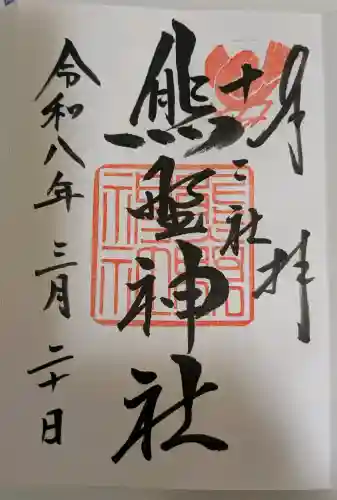 奉拝
十二社
熊野神社
令和八年 三月二十日